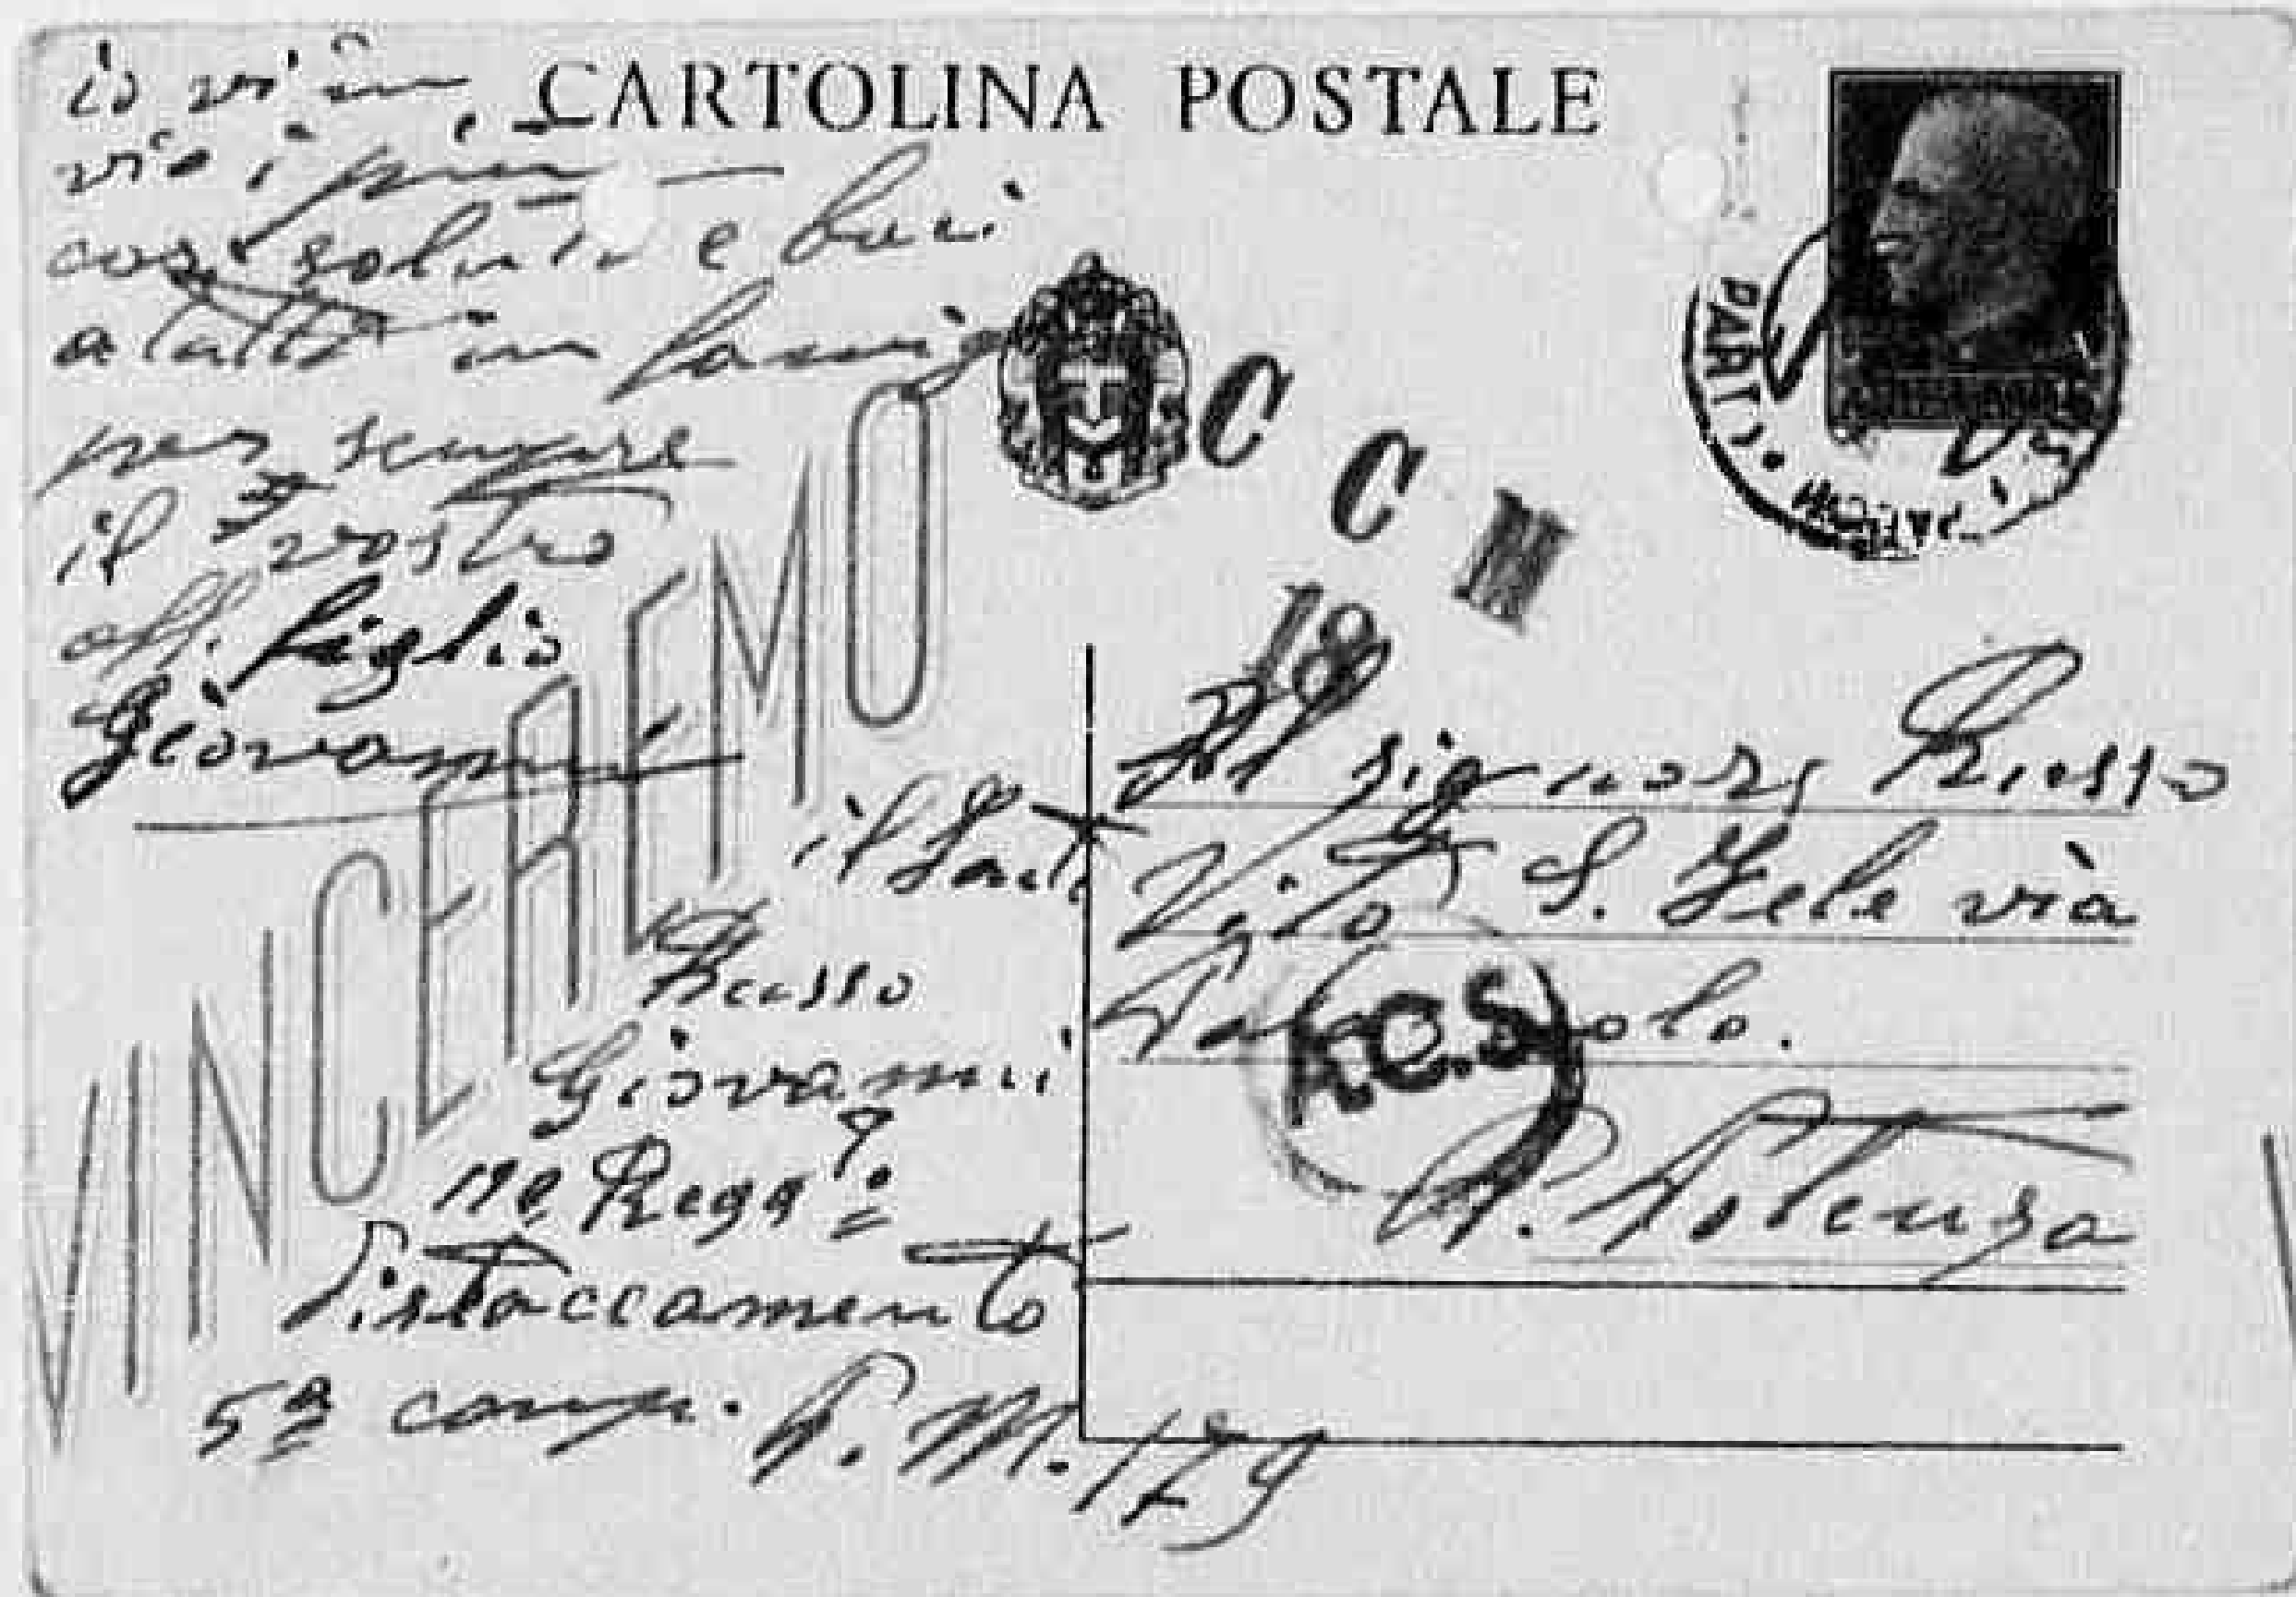 CARTOLINA POSTALE
io vi in
vio i più
cari saluti e baci
a tutti in famig
per sempre
il vostro
aff. figlio
Giovanni
VINCEREMO
C C
18
Al signore Russo
Vito S. Fele via
P. Potenza
R.C.S
il Sold
Russo
Giovanni
11º Regg.
Distaccamento
5ª comp. P. M. 129